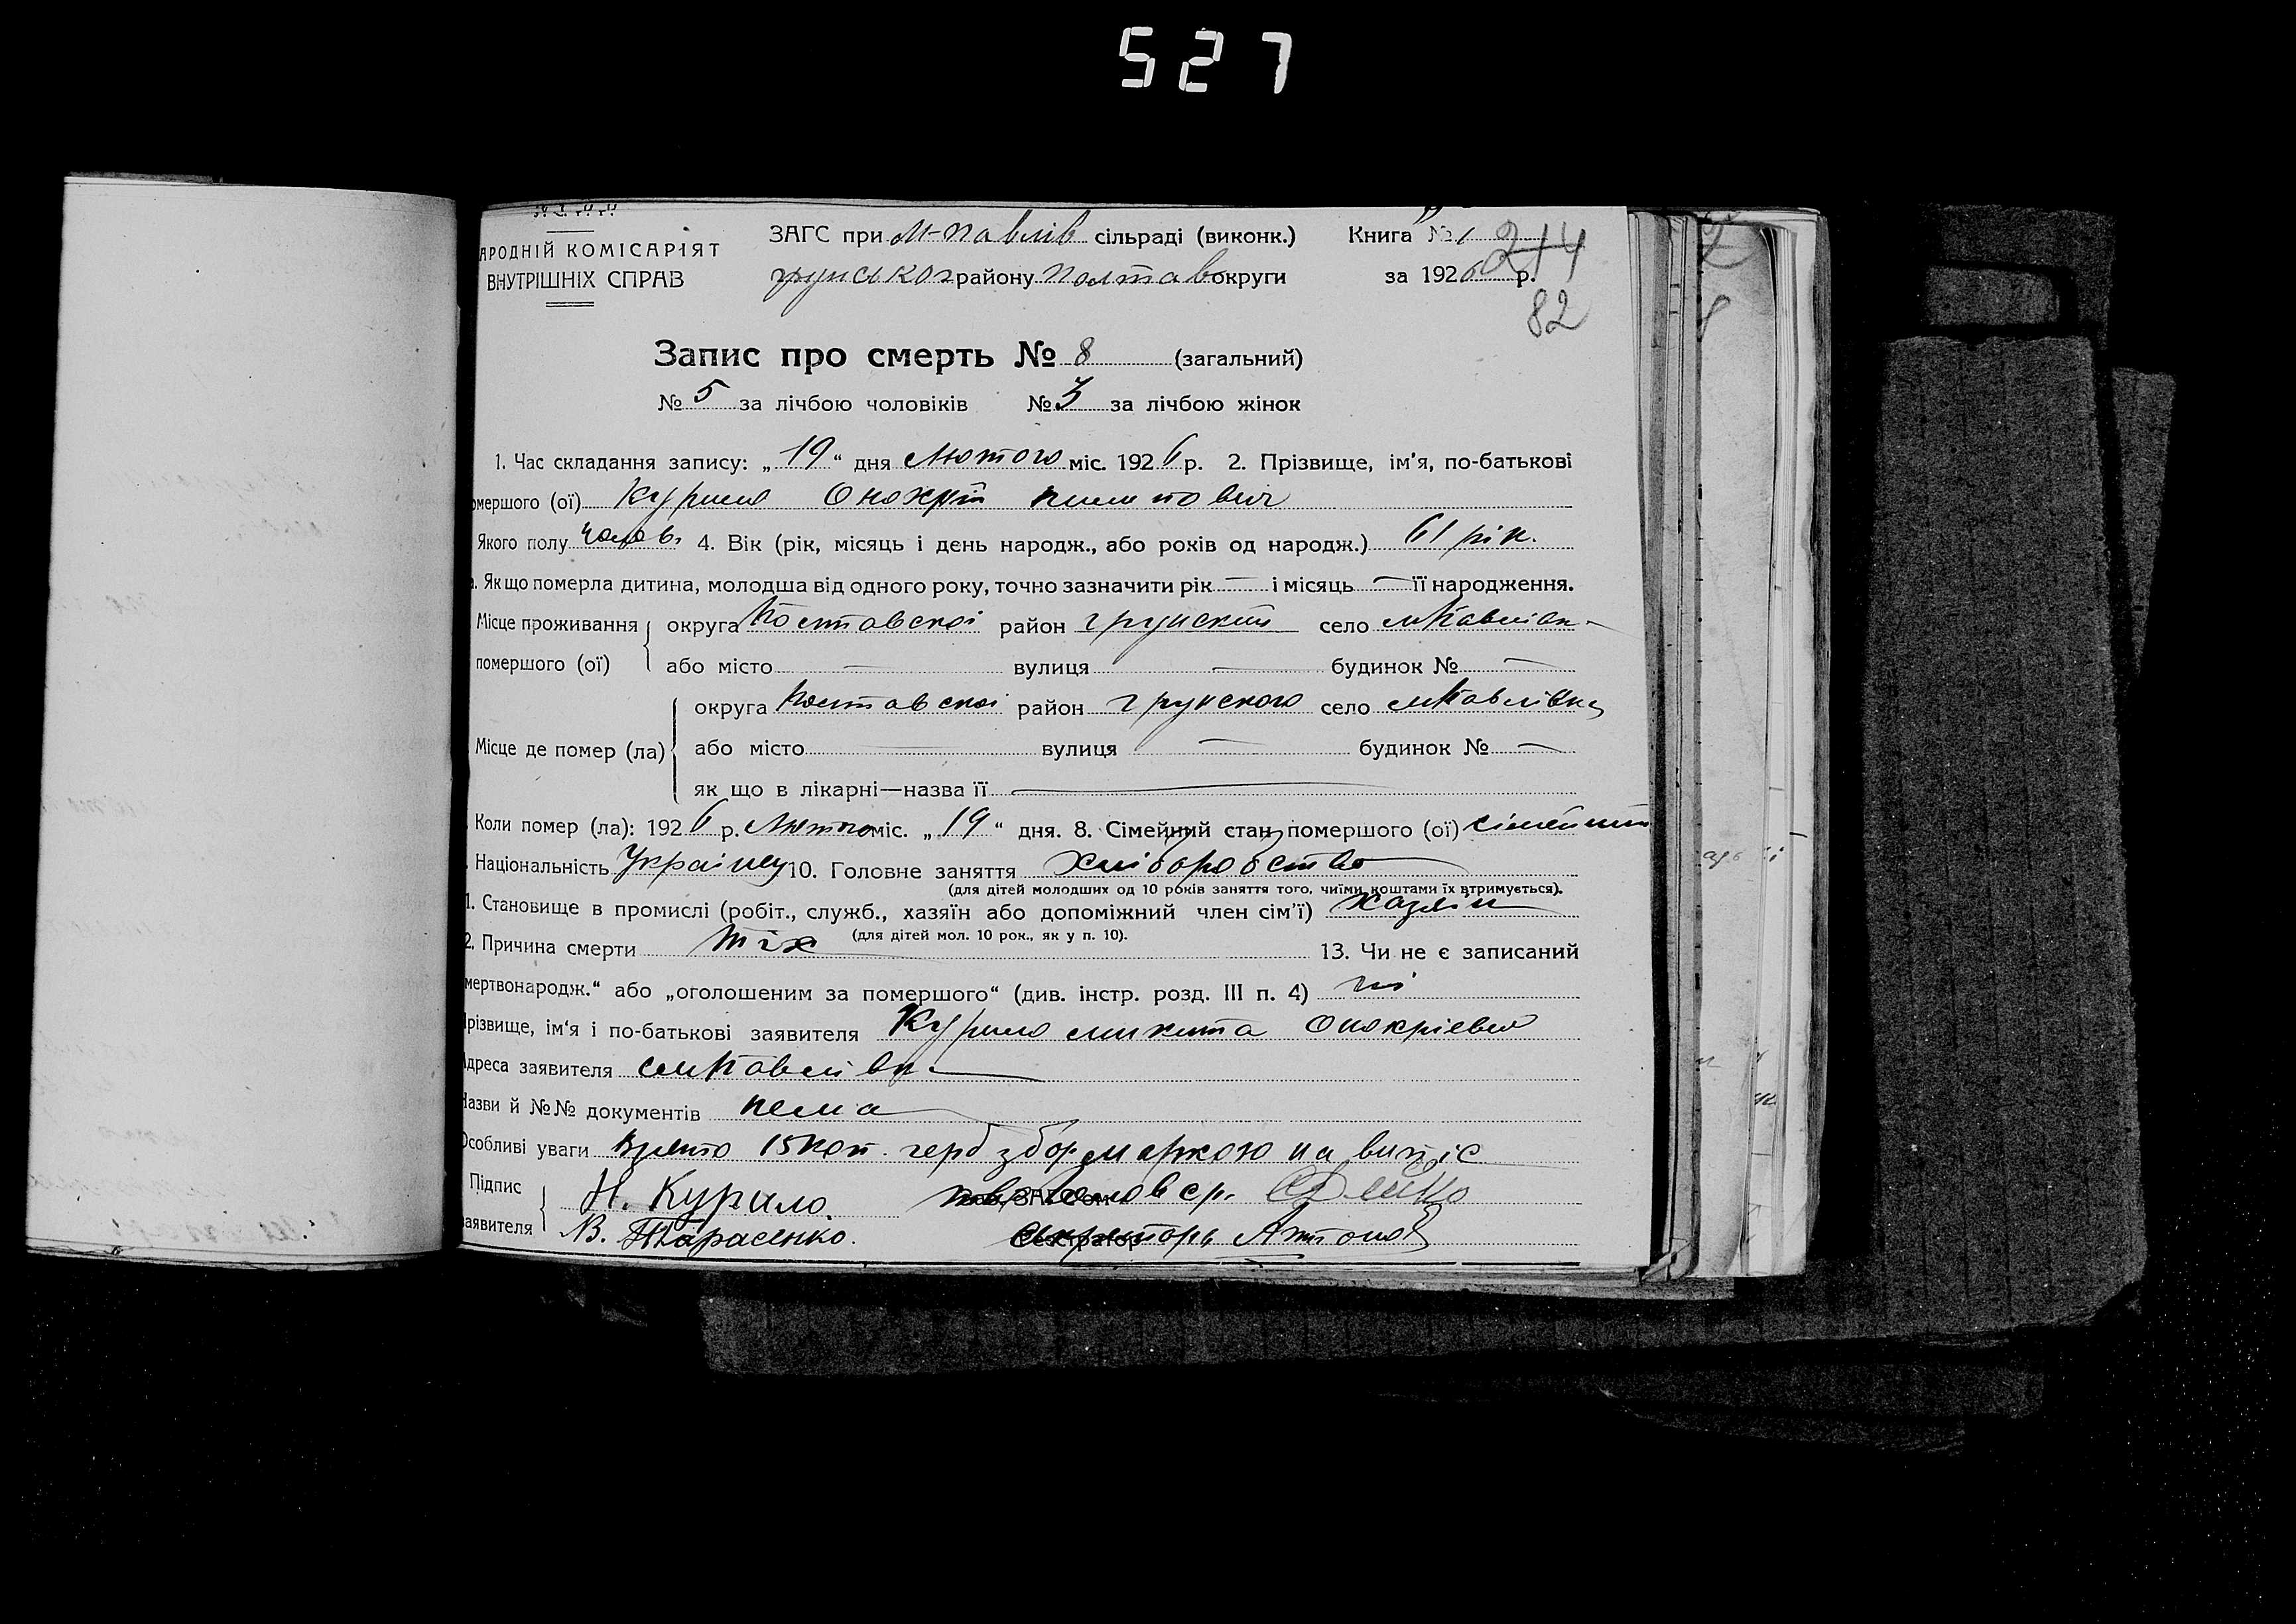 527
НАРОДНІЙ КОМІСАРІЯТ
ВНУТРІШНІХ СПРАВ
ЗАГС при М-Павлів сільраді (виконк.) Книга № 1
грунського району Полтав округи за 1926 р.
214
82
Запис про смерть № 8 (загальний)
№ 5 за лічбою чоловіків № 3 за лічбою жінок
1. Час складання запису: „19“ дня Лютого міс. 1926 р. 2. Прізвище, ім'я, по-батькові
омершого (ої) Курило Онохрій
Якого полу чолов. 4. Вік (рік, місяць і день народж., або років од народж.) 61 рік.
Як що померла дитина, молодша від одного року, точно зазначити рік — і місяць — її народження.
Місце проживання округа Полтавської район грунский село мПавлівк-
помершого (ої) або місто — вулиця — будинок № —
округа Полтавскої район грунского село мПавлівка
Місце де помер (ла) або місто — вулиця — будинок № —
як що в лікарні—назва її —
Коли помер (ла): 1926 р. Лютого міс. „19“ дня. 8. Сімейний стан помершого (ої) сімейний
Національність Українец 10. Головне заняття хліборобство
(для дітей молодших од 10 років заняття того, чиїми коштами їх втримується).
1. Становище в промислі (робіт., служб., хазяїн або допоміжний член сім'ї) хазяїн
(для дітей мол. 10 рок., як у п. 10).
2. Причина смерти тіх 13. Чи не є записаний
мертвонародж.“ або „оголошеним за помершого“ (див. інстр. розд. III п. 4) ні
різвище, ім'я і по-батькові заявителя Курило микита Онокрієвич
Адреса заявителя смПавлівк-
Назви й №№ документів нема
Особливі уваги Взято 15 коп. герб збор маркою на випіс
Підпис Н. Курило.
заявителя В. Тарасенко. Антонов